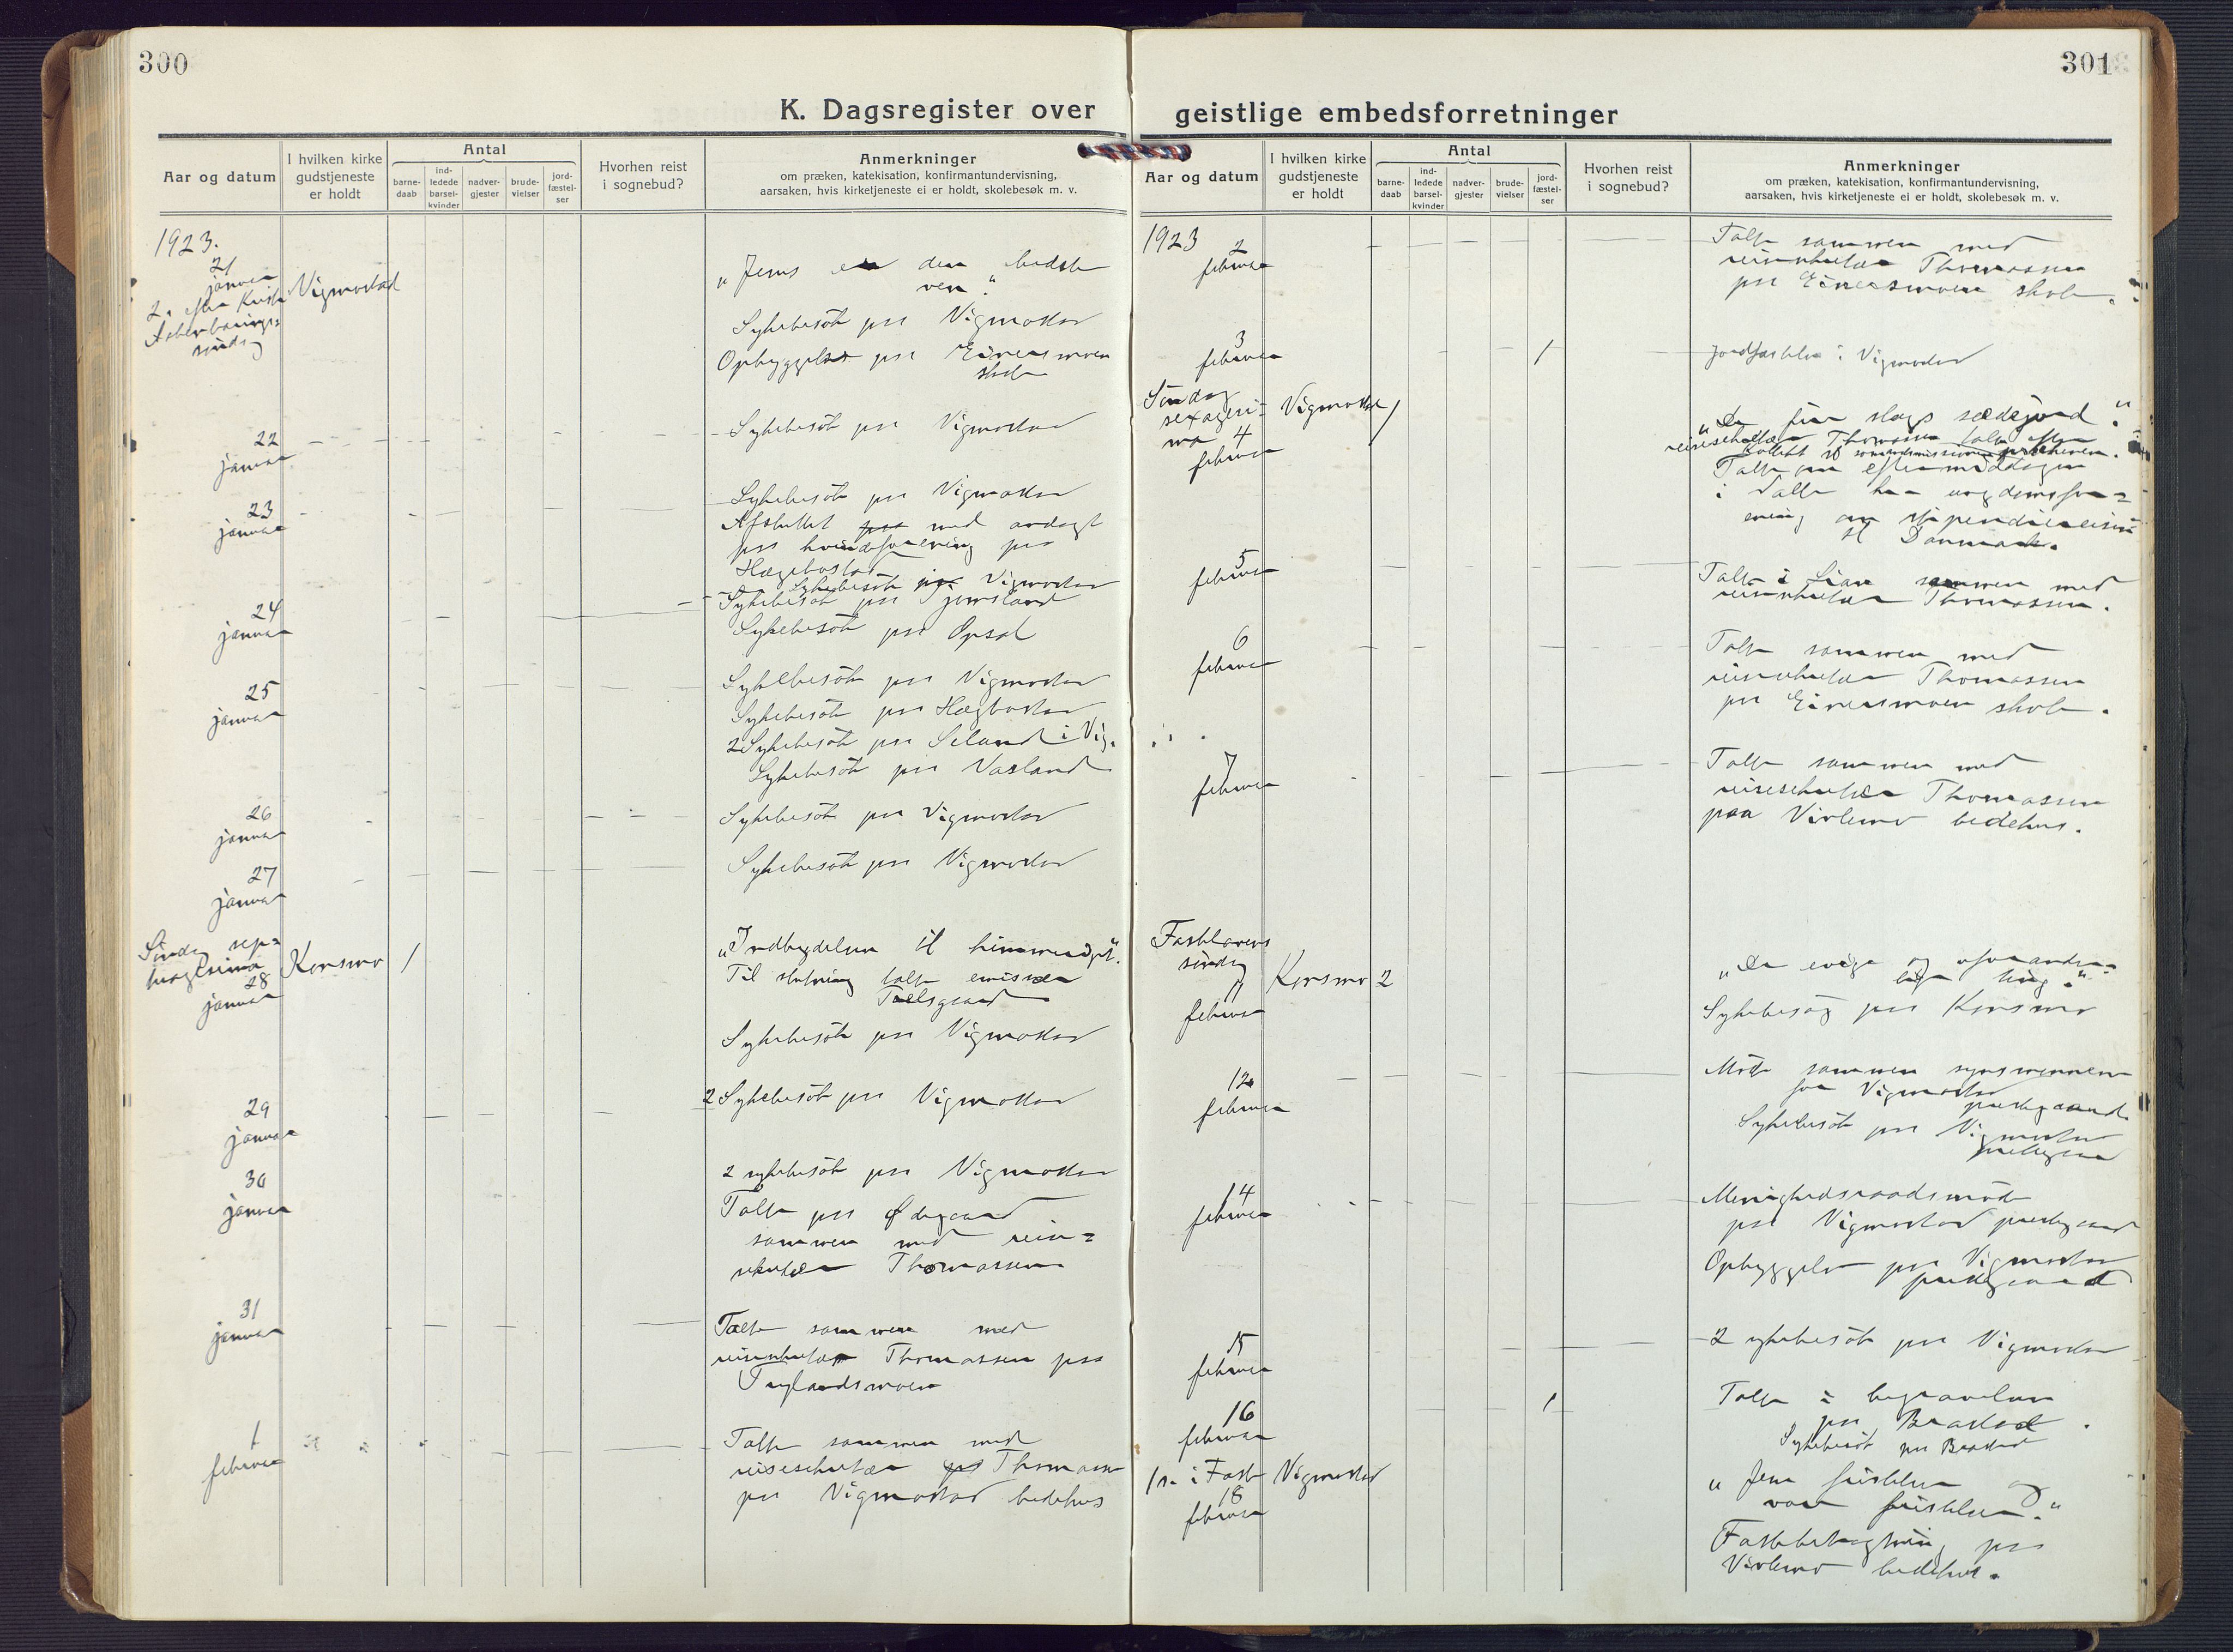 300
K. Dagsregister over
Aar og datum
I hvilken kirke
gudstjeneste
er holdt
Antal
barne-
daab
ind-
ledede
barsel-
kvinder
nadver-
gjester
brude-
vielser
jord-
fæstel-
ser
Hvorhen reist
i sognebud?
Anmerkninger
om præken, katekisation, konfirmantundervisning,
aarsaken, hvis kirketjeneste ei er holdt, skolebesøk m. v.
1923.
21
januar
2. efter Kristi
Aabenbarings=
søndag
Vigmostad
„Jesus er den bedste
ven."
Sykebesøk paa Vigmostad
Opbyggelse paa Eineasmoen
skole
22
januar
Sykebesøk paa Vigmostad
23
januar
Sykebesøk paa Vigmostad
Afsluttet paa med andagt
paa kvindeforening paa
Hægebostad
Sykebesøk paa Vigmostad
24
januar
Sykebesøk paa Gjemsland
Sykebesøk paa Opsal
25
januar
Sykebesøk paa Vigmostad
Sykebesøk paa Hægbostad
2 Sykebesøk paa Seland i Vig.
Sykebesøk paa Vasland
26
januar
Sykebesøk paa Vigmostad
27
januar
Sykebesøk paa Vigmostad
Søndag sep=
tuagesima
28
januar
Konsmo
1
„Indbydelsen til himmeriget".
Til slutning talte emissær
Sykebesøk paa Vigmostad
29
januar
2 Sykebesøk paa Vigmostad
30
januar
2 sykebesøk paa Vigmostad
Talte paa Ødegaard
sammen med reise=
sekretær Thomassen
31
januar
Talte sammen med
reisesekretær Thomassen paa
Trylandsmoen
1
februar
Talte sammen med
reisesekretær paa Thomassen
paa Vigmostad bedehus
301
geistlige embedsforretninger
Aar og datum
I hvilken kirke
gudstjeneste
er holdt
Antal
barne-
daab
ind-
ledede
barsel-
kvinder
nadver-
gjester
brude-
vielser
jord-
fæstel-
ser
Hvorhen reist
i sognebud?
Anmerkninger
om præken, katekisation, konfirmantundervisning,
aarsaken, hvis kirketjeneste ei er holdt, skolebesøk m. v.
1923
2
februar
Talte sammen med
reisesekretær Thomassen
paa Eineasmoen skole.
3
februar
1
Jordfæstelse i Vigmostad
Søndag
sexagesi=
ma 4
februar
Vigmostad
1
„De fire slags sædejord".
reisesekretær Thomassen talte efter
prækenen.
Talte om eftermiddagen
i Valle hos ungdomsfor=
ening om stipendiereisen
til Danmark.
5
februar
Talte i Lian sammen med
reisesekretær Thomassen.
6
februar
Talte sammen med
reisesekretær Thomassen
paa Eineasmoen skole.
7
februar
Talte sammen med
reisesekretær Thomassen
paa Virlemo bedehus.
Fastelavens
søndag
11
februar
Konsmo
2
„De evige og uforander=
lige ting."
Sykebesøg paa Konsmo
12
februar
Møde sammen synsmennene
for Vigmostad
prestegaard
Sykebesøk paa Vigmostad
prestegaard
14
februar
Menighedsraadsmøde
paa Vigmostad prestegaard
Opbyggelse paa Vigmostad
prestegaard
15
februar
2 sykebesøk paa Vigmostad
16
februar
1
Talte i begravelsen
paa Braastad.
Sykebesøk paa Braastad
1 s. i Faste
18
februar
Vigmostad
„Jesu fristelse og
vor fristelse."
Fastebetragtning paa
Virlemo bedehus.